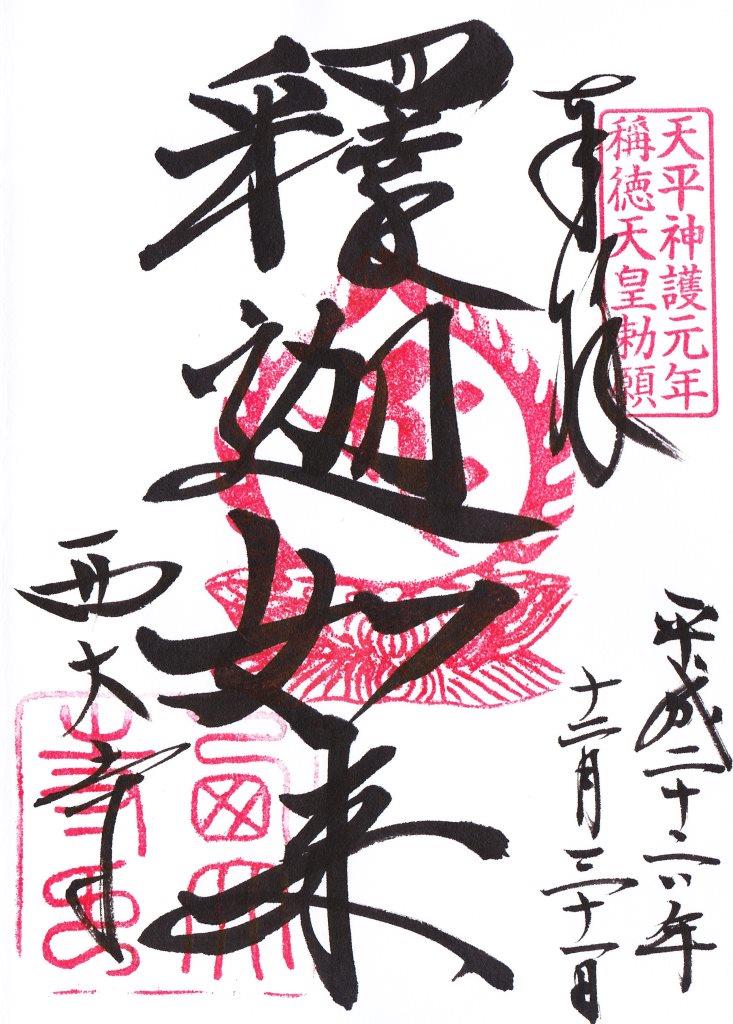 天平神護元年
稱徳天皇勅願
奉拝
平成二十六年
十二月三十一日
釋迦如来
西大寺